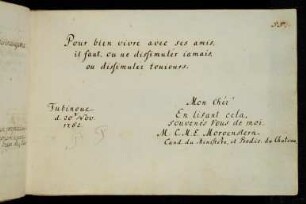 Pour bien vivre avec ses amis,
il faut, ou ne dissimuler iamais,
ou dissimuler touiours.
Tubingue
d. 20 Nov.
1762.
Mon Chér
En lisant cela,
souvenés vous de moi
M. C. M. E. Morgenstern
Cand. du Ministére, et Predic. du Chateau